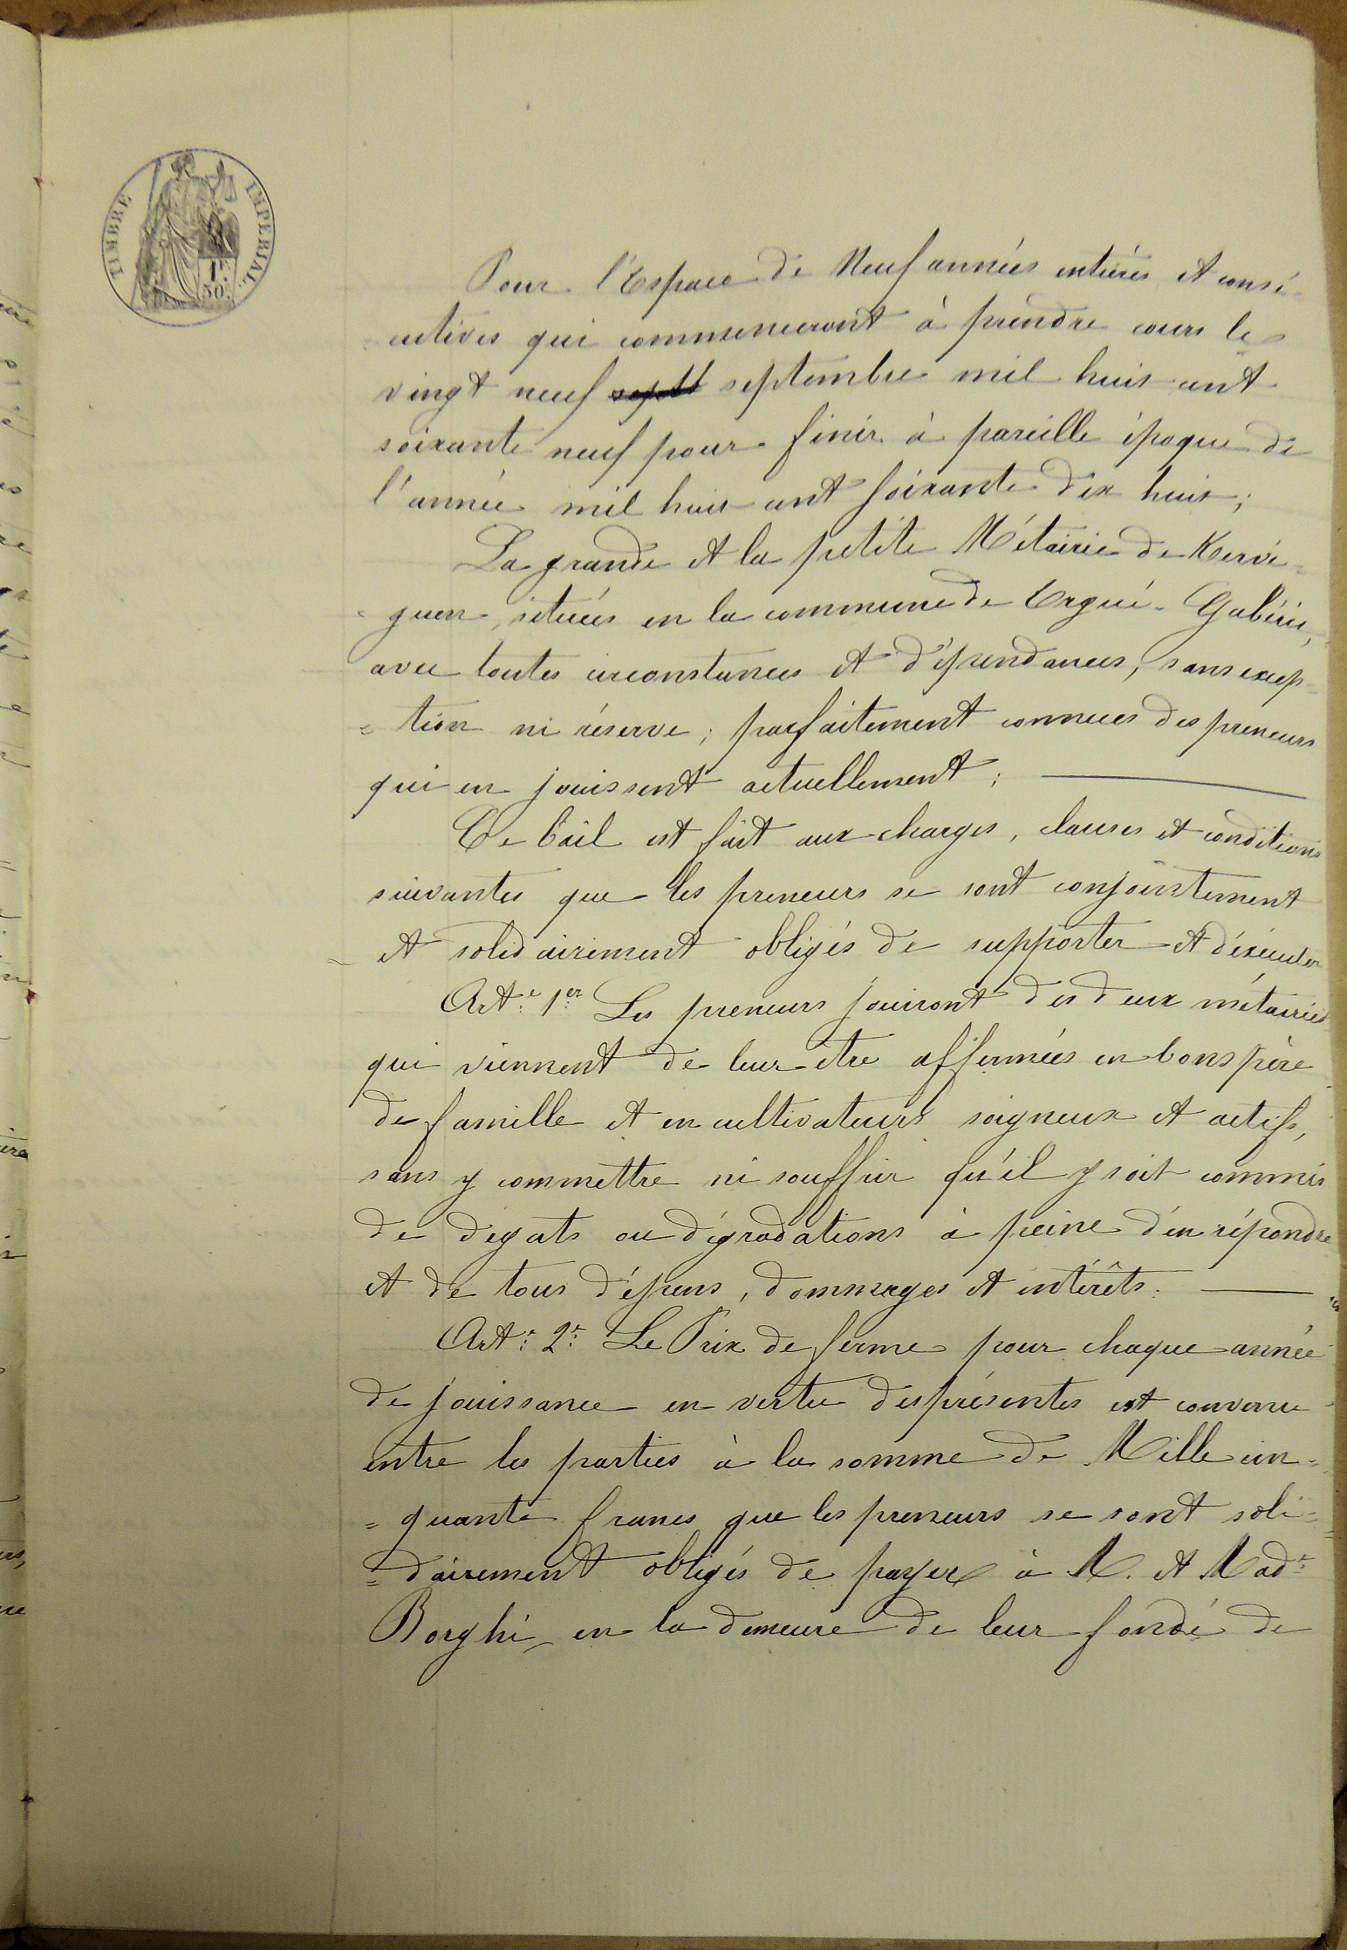 TIMBRE IMPERIAL
1F
50c
Pour l'Espace de Neuf années entières et consé-
-cutives qui commenceront à prendre cours le
vingt neuf septembre mil huit cent
soixante neuf pour finir à pareille époque de
l'année mil huit cent soixante dix huit ;
La grande et la petite Métairie de Kervé=
-guen, situées en la commune de Ergué-Gabéric,
avec toutes circonstances et dépendances, sans excep-
=tion ni réserve ; parfaitement connues des preneurs
qui en jouissent actuellement ;
Ce bail est fait aux charges, clauses et conditions
suivantes que les preneurs se sont conjointement
et solidairement obligés de supporter et d'éxécuter
Art.e 1er Les preneurs jouiront des deux métairies
qui viennent de leur etre affermées en bons père
de famille et en cultivateurs soigneux et actifs,
sans y commettre ni souffrir qu'il y soit commis
de dégats ou dégradations à peine d'en répondre
et de tous dépens, dommages et intérêts.
Art.e 2.e Le Prix de ferme pour chaque année
de jouissance en vertu des présentes est convenu
entre les parties à la somme de Mille cin-
=quante francs que les preneurs se sont soli=
=dairement obligés de payer à M. et Mad.e
Borghi, en la demeure de leur fondé de